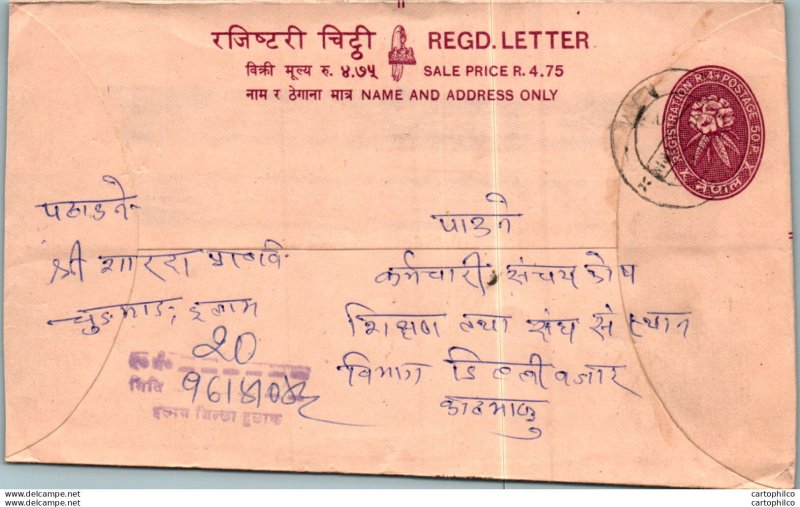 रजिष्टरी चिट्ठी REGD. LETTER
बिक्री मूल्य रु. ४.७५ SALE PRICE R. 4.75
नाम र ठेगाना मात्र NAME AND ADDRESS ONLY
REGISTRATION R.4. POSTAGE 50 P.
नेपाल
पठाउने
श्री शारदा
चुङमाङ, इलाम
पाउने
कर्मचारी संचय कोष
शिक्षण तथा संघ संस्थान
विभाग डिल्लीबजार
काठमाडु
20
मिति
इलाम जिल्ला हुलाक
www.delcampe.net
cartophilco
cartophilco